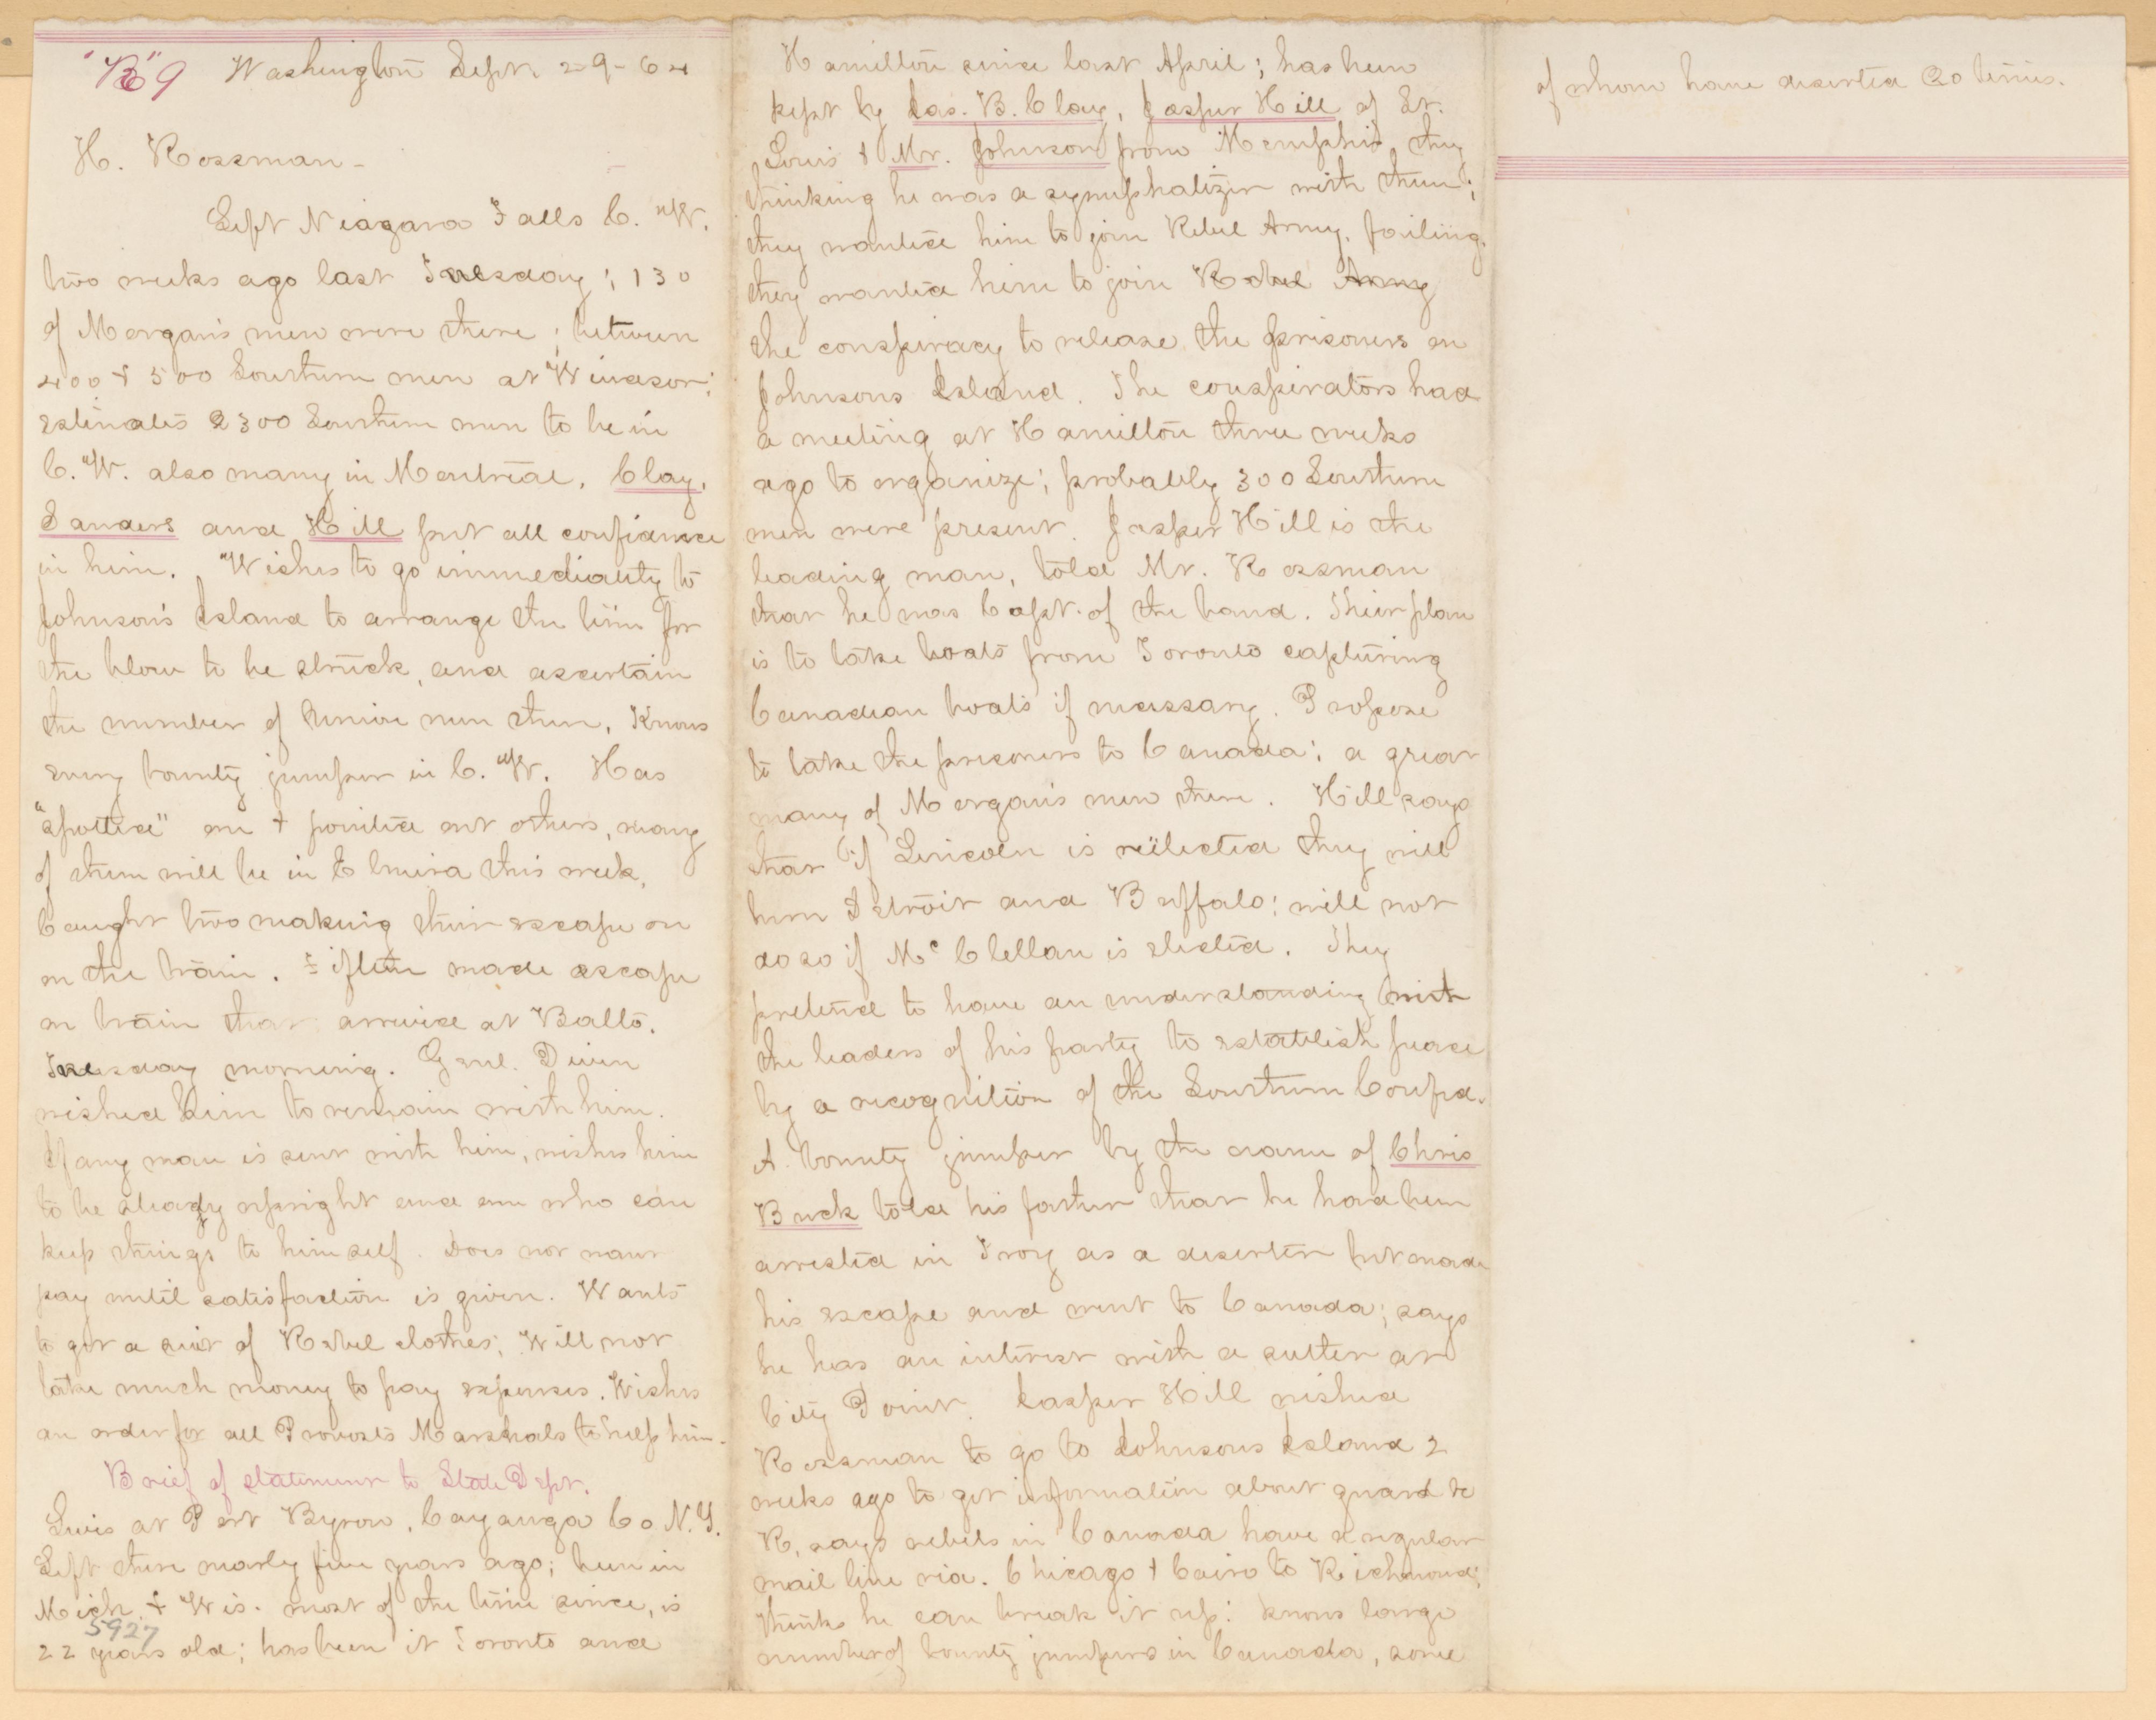 "R" 9 Washington Sept. 29-64
H. Rossman-
Left Niagara Falls C. W.
two weeks ago last Tuesday; 130
of Morgan's men were there; between
400 & 500 Southern men at Windsor;
estimates 2300 Southern men to be in
C. W. also many in Montreal. Clay,
Sanders and Hill put all confidence
in him. Wishes to go immediately to
Johnson's Island to arrange the time for
the blow to be struck, and ascertain
the number of Union men there. Knows
every bounty jumper in C. W. Has
"spotted" em & pointed out others, many
of them will be in Elmira this week.
Caught two making their escape on
on the train. Fifteen made escape
on train that arrived at Balto.
Tuesday morning. Genl. Diven
wished him to remain with him.
If any man is sent with him, wishes him
to be steady upright and one who can
keep things to himself. Does not want
pay until satisfaction is given. Wants
to get a suit of Rebel clothes; Will not
take much money to pay expenses. Wishes
an order for all Provosts Marshals to help him-
Brief of statement to State Dept.
Lives at Port Byron, Cayauga Co N.Y.
Left there nearly five years ago; been in
Mich. & Wis. most of the time since, is
5927
22 years old; has been it Toronto and
Hamilton since last April; has been
kept by Jas. B. Clay, Jasper Hill of St.
Louis & Mr. Johnson from Memphis, they
thinking he was a symphatizer with them;
they wanted him to join Rebel Army. failing.
they wanted him to join Rebel Army
the conspiracy to release the prisoners on
Johnsons Island. The conspirators had
a meeting at Hamilton three weeks
ago to organize; probably 300 Southern
men were present. Jasper Hill is the
leading man, told Mr. Rossman
that he was Capt. of the band. Their plan
is to take boats from Toronto capturing
Canadian boats if necessary. Propose
to take the prisoners to Canada; a great
many of Morgan's men there. Hill says
that if Lincoln is reëlected they will
burn Detroit and Buffalo; will not
do so if McClellan is elected. They
pretend to have an understanding with
the leaders of his party to establish peace
by a recognition of the Southern Confed.
A bounty jumper by the name of Chris
Buck told his father that he had been
arrested in Troy as a deserter but made
his escape and went to Canada; says
he has an interest with a sutler at
City Point. Jasper Hill wished
Rossman to go to Johnsons Island 2
weeks ago to get information about guard &c
R. says rebels in Canada have a regular
mail line via. Chicago & Cairo to Richmond;
thinks he can break it up: knows large
number of bounty jumpers in Canada, some
of whom have deserted 20 times.